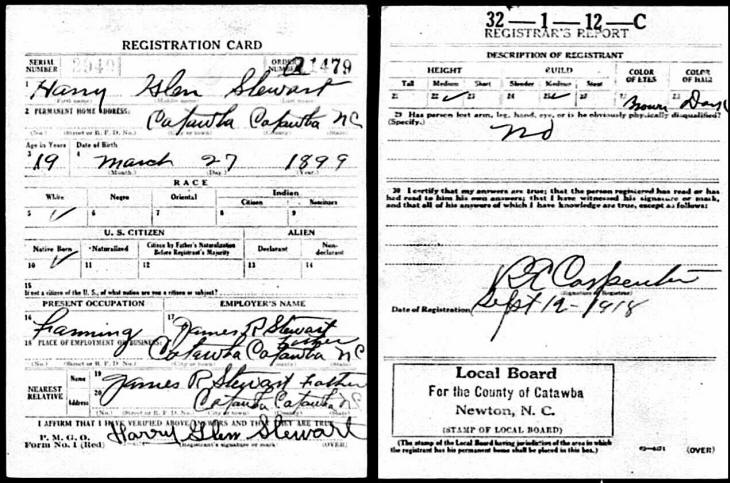 REGISTRATION CARD
SERIAL NUMBER 2949 ORDER NUMBER A1479
1 Harry Glen Stewart
(First name) (Middle name) (Last name)
2 PERMANENT HOME ADDRESS:
Catawba Catawba NC
(No.) (Street or R. F. D. No.) (City or town) (County) (State)
Age in Years Date of Birth
3 19 4 March 27 1899
(Month.) (Day.) (Year.)
RACE
White Negro Oriental Indian
Citizen Noncitizen
5 ✓ 6 7 8 9
U. S. CITIZEN ALIEN
Native Born Naturalized Citizen by Father's Naturalization Before Registrant's Majority Declarant Non-declarant
10 ✓ 11 12 13 14
15
If not a citizen of the U. S., of what nation are you a citizen or subject?
PRESENT OCCUPATION EMPLOYER'S NAME
16 Farming 17 James R Stewart
Father
18 PLACE OF EMPLOYMENT OR BUSINESS:
Catawba Catawba NC
(No.) (Street or R. F. D. No.) (City or town) (County) (State)
NEAREST RELATIVE Name 19 James R Stewart Father
Address 20 Catawba Catawba NC
(No.) (Street or R. F. D. No.) (City or town) (County) (State)
I AFFIRM THAT I HAVE VERIFIED ABOVE ANSWERS AND THAT THEY ARE TRUE
P. M. G. O.
Form No. 1 (Red) Harry Glen Stewart
(Registrant's signature or mark) (OVER)
32—1—12—C
REGISTRAR'S REPORT
DESCRIPTION OF REGISTRANT
HEIGHT BUILD COLOR OF EYES COLOR OF HAIR
Tall Medium Short Slender Medium Stout
21 22 ✓ 23 24 25 ✓ 26 27 28
29 Has person lost arm, leg, hand, eye, or is he obviously physically disqualified?
(Specify.) No
30 I certify that my answers are true; that the person registered has read or has
had read to him his own answers; that I have witnessed his signature or mark,
and that all of his answers of which I have knowledge are true, except as follows:
R E Carpenter
(Signature of Registrar)
Date of Registration Sept 12-1918
Local Board
For the County of Catawba
Newton, N. C.
(STAMP OF LOCAL BOARD)
(The stamp of the Local Board having jurisdiction of the area in which
the registrant has his permanent home shall be placed in this box.) (OVER)